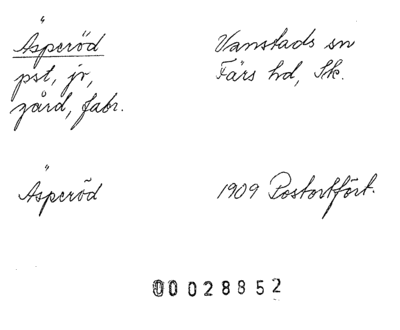 Äsperöd Vanstads sn
pst, jv, Färs hd, Sk.
gård, fabr.
Äsperöd 1909 Postortfört.
00028852